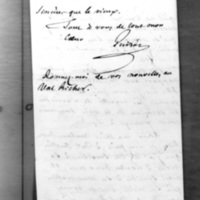 sincère que le vieux.
Tout à vous de tout mon
Cœur
Guizot
Donnez-moi de vos nouvelles, au
Val Richer.